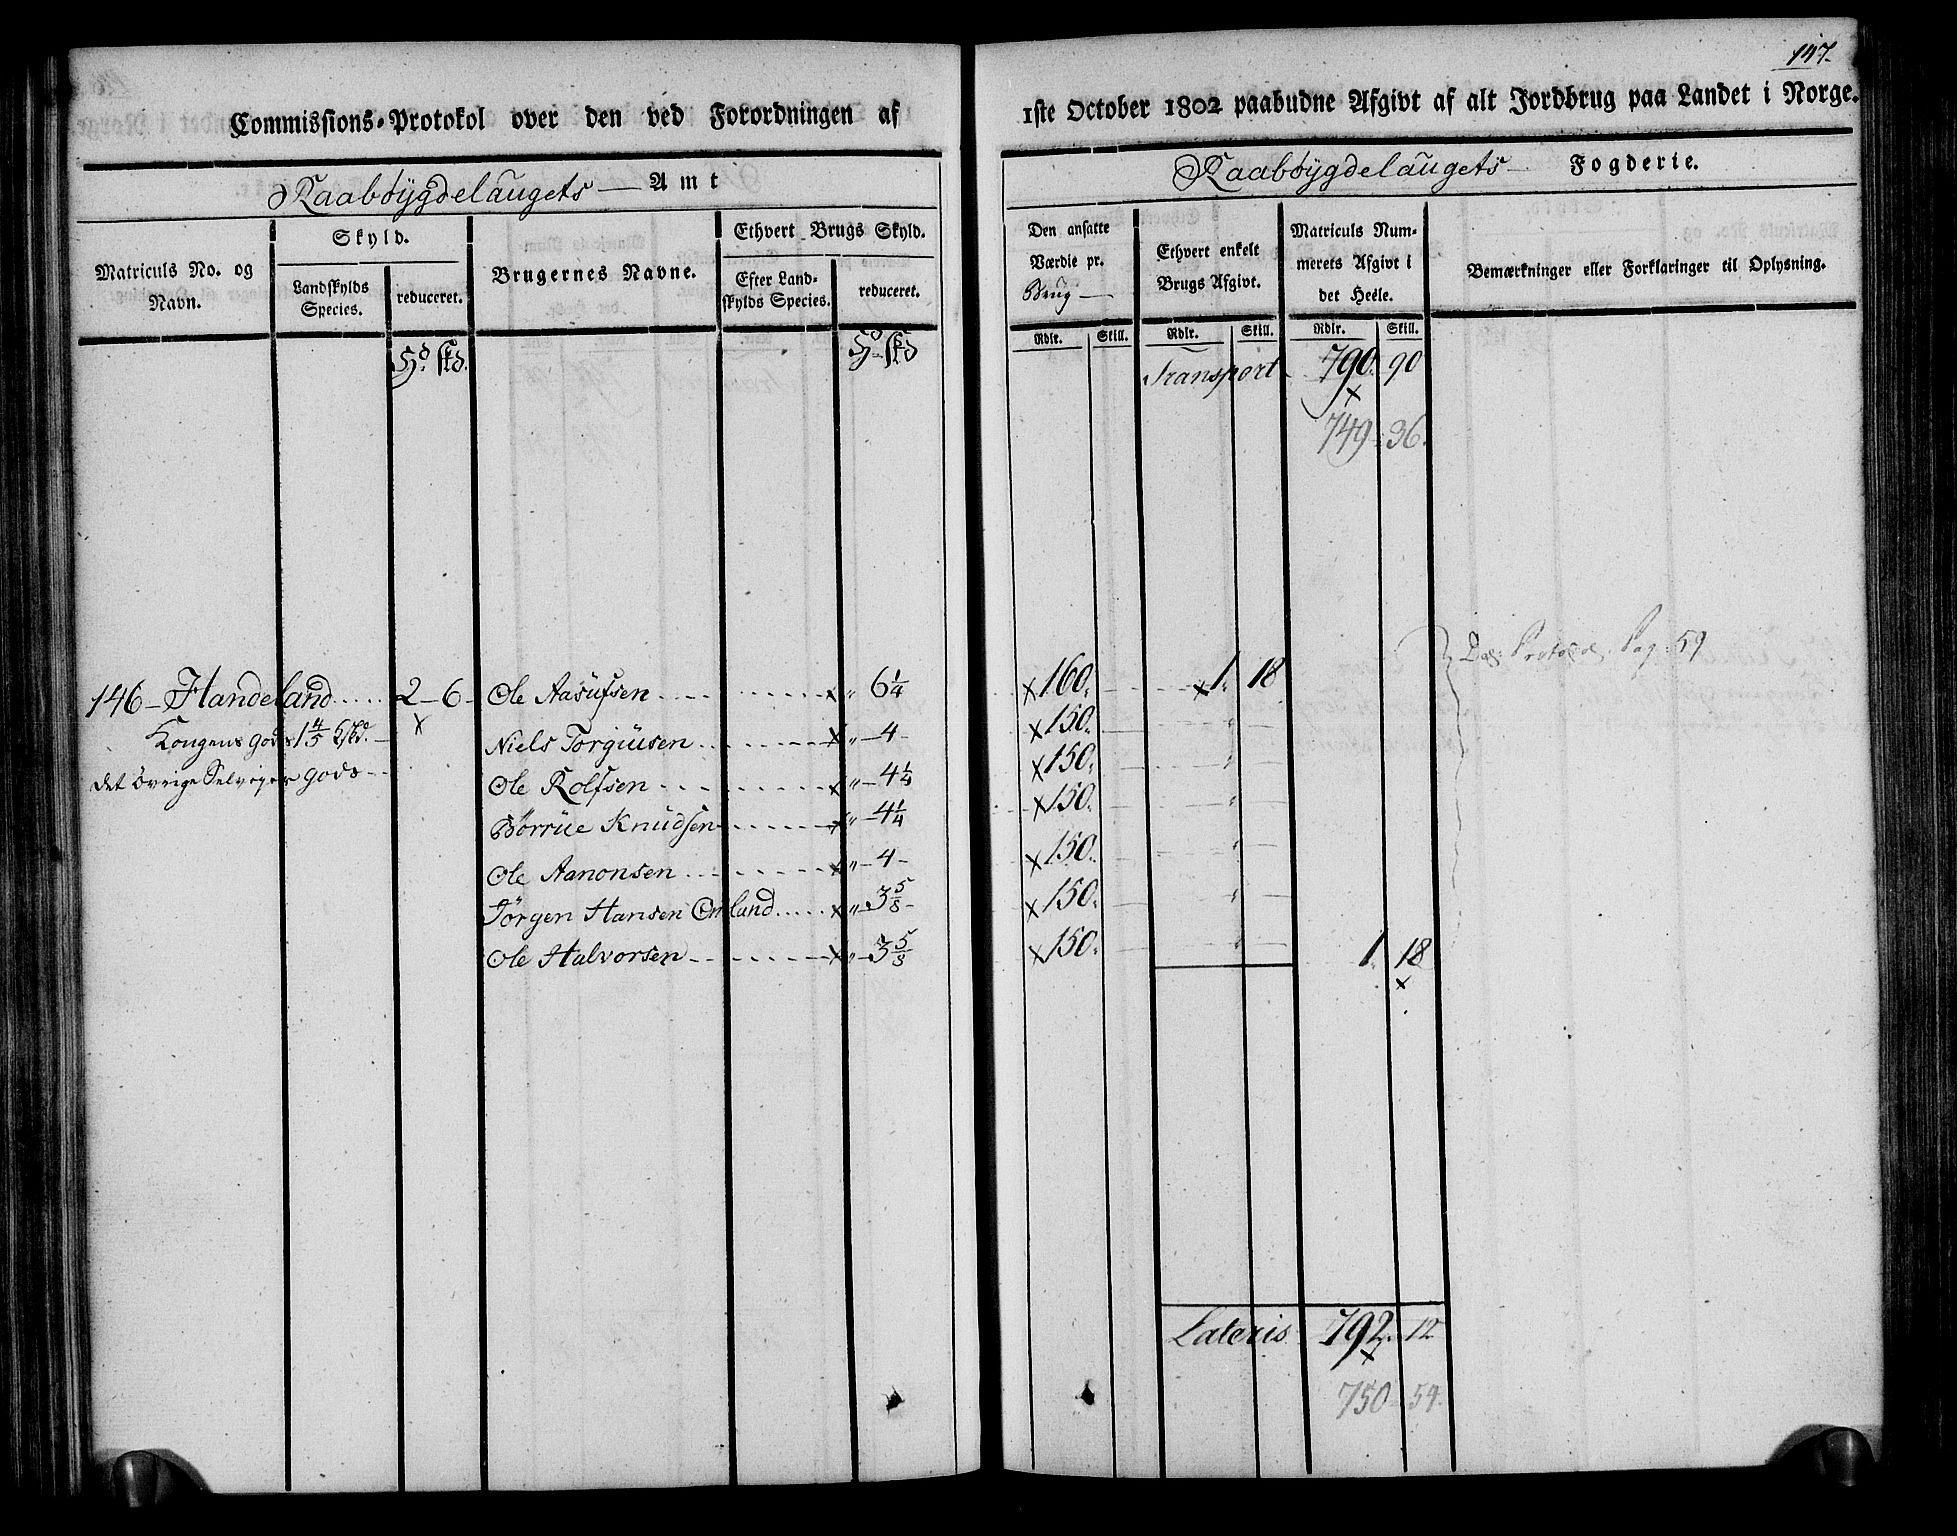 147.
Commissions-Protokol over den ved Forordningen af 1ste October 1802 paabudne Afgivt af alt Jordbrug paa Landet i Norge.
Raabøygdelaugets — Amt
Raabøygdelaugets — Fogderie.
Matriculs No. og Navn.
Skyld.
Landskylds Species.
reduceret.
Brugernes Navne.
Ethvert Brugs Skyld.
Efter Landskylds Species.
reduceret.
Den ansatte Værdie pr. Brug —
Ethvert enkelt Brugs Afgivt.
Matriculs Nummerets Afgivt i det Heele.
Bemærkninger eller Forklaringer til Oplysning.
Rdlr. Skill. Rdlr. Skill. Rdlr. Skill.
Hd. skd. Hd. skd
Transport 790. 90
749 = 36.
Protocol Pag: 59
146 – Handeland..... 2 – 6 – Ole Aasulfsen x " 6¼ x 160. x 1. 18
Kongens gods 1⅘ hd. — x Niels Torgiusen x " – 4 – x 150. "
det øvrige Selvejer gods – Ole Rolfsen x " – 4¼ x 150. "
Børrue Knudsen x " – 4¼ x 150. "
Ole Aanonsen x " – 4 – x 150. "
Jørgen Hansen Omland x " – 3⅝ – x 150. "
Ole Halvorsen x " – 3⅝ x 150. " 1. 18
x
Lateris 792. 12
x
750 54.